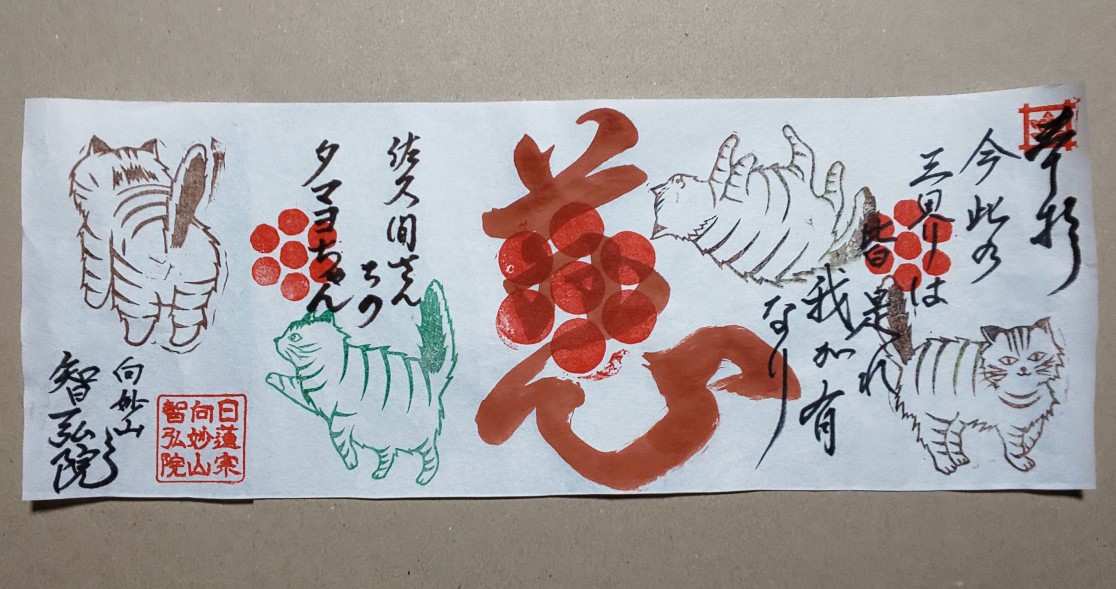 奉拝
今此の
三界は
皆是れ
我が有
なり
慈
佐久間さん
ちの
タマヨちゃん
日蓮宗
向妙山
智弘院
向妙山
智弘院